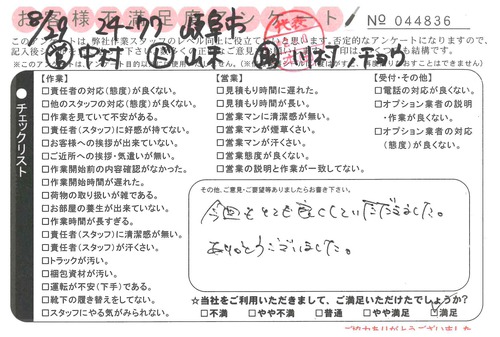 お客様不満足度アンケート
No 044836
このアンケートは、弊社作業スタッフのレベル向上に役立て
※このアンケート
チェックリスト
【作業】
□責任者の対応(態度)が良くない。
□他のスタッフの対応(態度)が良くない。
□作業を見ていて不安がある。
□責任者(スタッフ)に好感が持てない。
□お客様への挨拶が出来ていない。
□ご近所への挨拶・気遣いが無い。
□作業開始前の内容確認がなかった。
□作業開始時間が遅れた。
□荷物の取り扱いが雑である。
□お部屋の養生が出来ていない。
□作業時間が長すぎる。
□責任者(スタッフ)に清潔感が無い。
□責任者(スタッフ)が汗くさい。
□トラックが汚い。
□梱包資材が汚い。
□運転が不安(下手)である。
□靴下の履き替えをしてない。
□スタッフにやる気がみられない。
【営業】
□見積もり時間に遅れた。
□見積もり時間が長い。
□営業マンに清潔感が無い。
□営業マンが煙草くさい。
□営業マンが汗くさい。
□営業態度が良くない。
□営業の説明と作業が一致してない。
【受付・その他】
□電話の対応が良くない。
□オプション業者の説明
・作業が良くない。
□オプション業者の対応
(態度)が良くない。
その他、ご意見・ご要望等ありましたらお書き下さい。
今回もとても良くしていただきました。
ありがとうございました。
☆当社をご利用いただきまして、ご満足いただけたでしょうか?
□不満 □やや不満 □普通 □やや満足 □満足
ご協力ありがとうございました